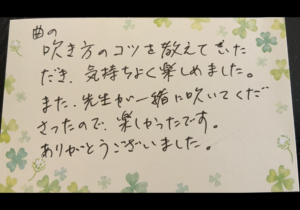 曲の
吹き方のコツを教えていただき、気持ちよく楽しめました。
また、先生が一緒に吹いてくださったので、楽しかったです。
ありがとうございました。